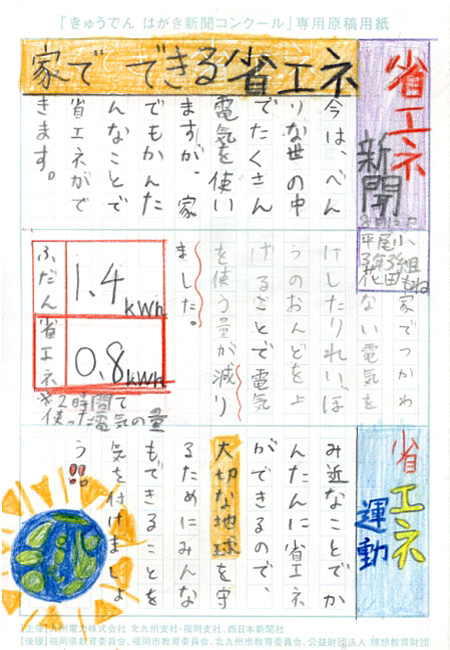 「きゅうでん はがき新聞コンクール」専用原稿用紙
省エネ
新聞
平尾小
3年3組
花田もね
家でできる省エネ
今は、べん
りな世の中
でたくさん
電気を使い
ますが、家
でもかんた
んなことで
省エネがで
きます。
家でつかわ
ない電気を
けしたりれいぼ
うのおんどを上
げることで電気
を使う量が減り
ました。
ふだん
1.4kWh
省エネ
0.8kWh
※2時間で
使った電気の量
省エネ
運動
み近なことでか
んたんに省エネ
ができるので、
大切な地球を守
るためにみんな
もできることを
気を付けましょ
う!!
【主催】九州電力株式会社 北九州支社・福岡支社、西日本新聞社
【後援】福岡県教育委員会、福岡市教育委員会、北九州市教育委員会、公益財団法人 理想教育財団